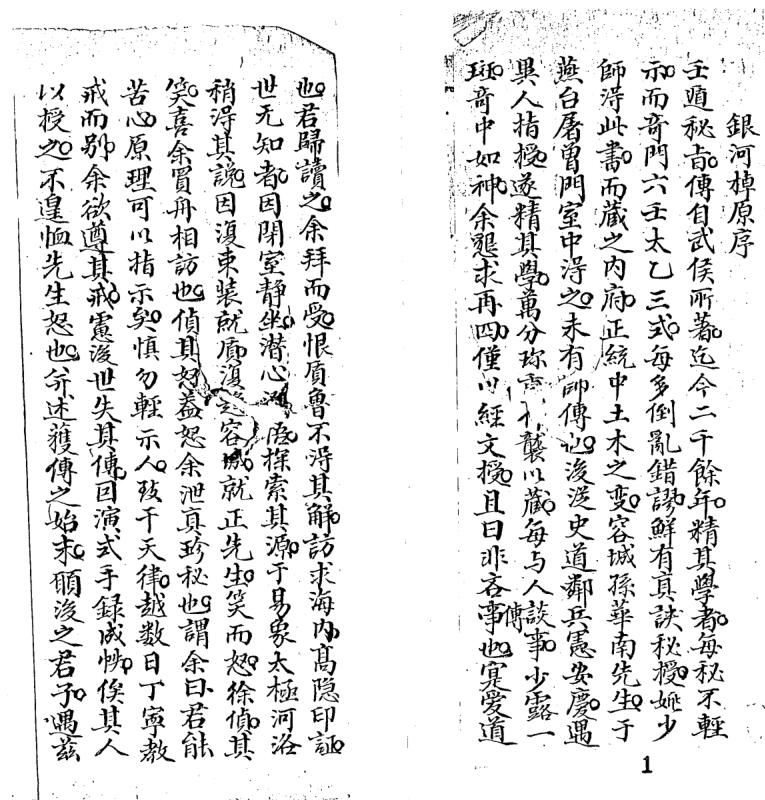 銀河棹原序
壬遁秘旨傳自武侯所著迄今二千餘年精其學者每秘不輕
示而奇門六壬太乙三式每多倒亂錯謬鮮有真訣秘授少
師淂此書而藏之内府正統中土木之变容城孫華南先生于
燕台屠曽門室中淂之未有師傳也後従史道鄰兵憲安慶遇
異人指授遂精其學萬分珍襲以藏每与人談事少露一
斑竒中如神余懇求再四僅以經文授且曰非吝傳事也寔愛道
也君歸讀之余拜而受恨質魯不淂其觧訪求海内髙隐印証
世无知者因閉室静坐潛心探索其源于易象太極河洛
稍淂其說因復束装就質復之容城就正先生笑而怒徐偵其
笑喜余買舟相訪也偵其好葢怒余泄真珍秘也謂余曰君能
苦心原理可以指示矣慎勿輕示人致干天律越数日丁寧教
戒而别余欲遵其戒憲後世失其傳囙演式手録成帙俟其人
以授之不遑恤先生怒也并述獲傳之始末願後之君子遇兹
1